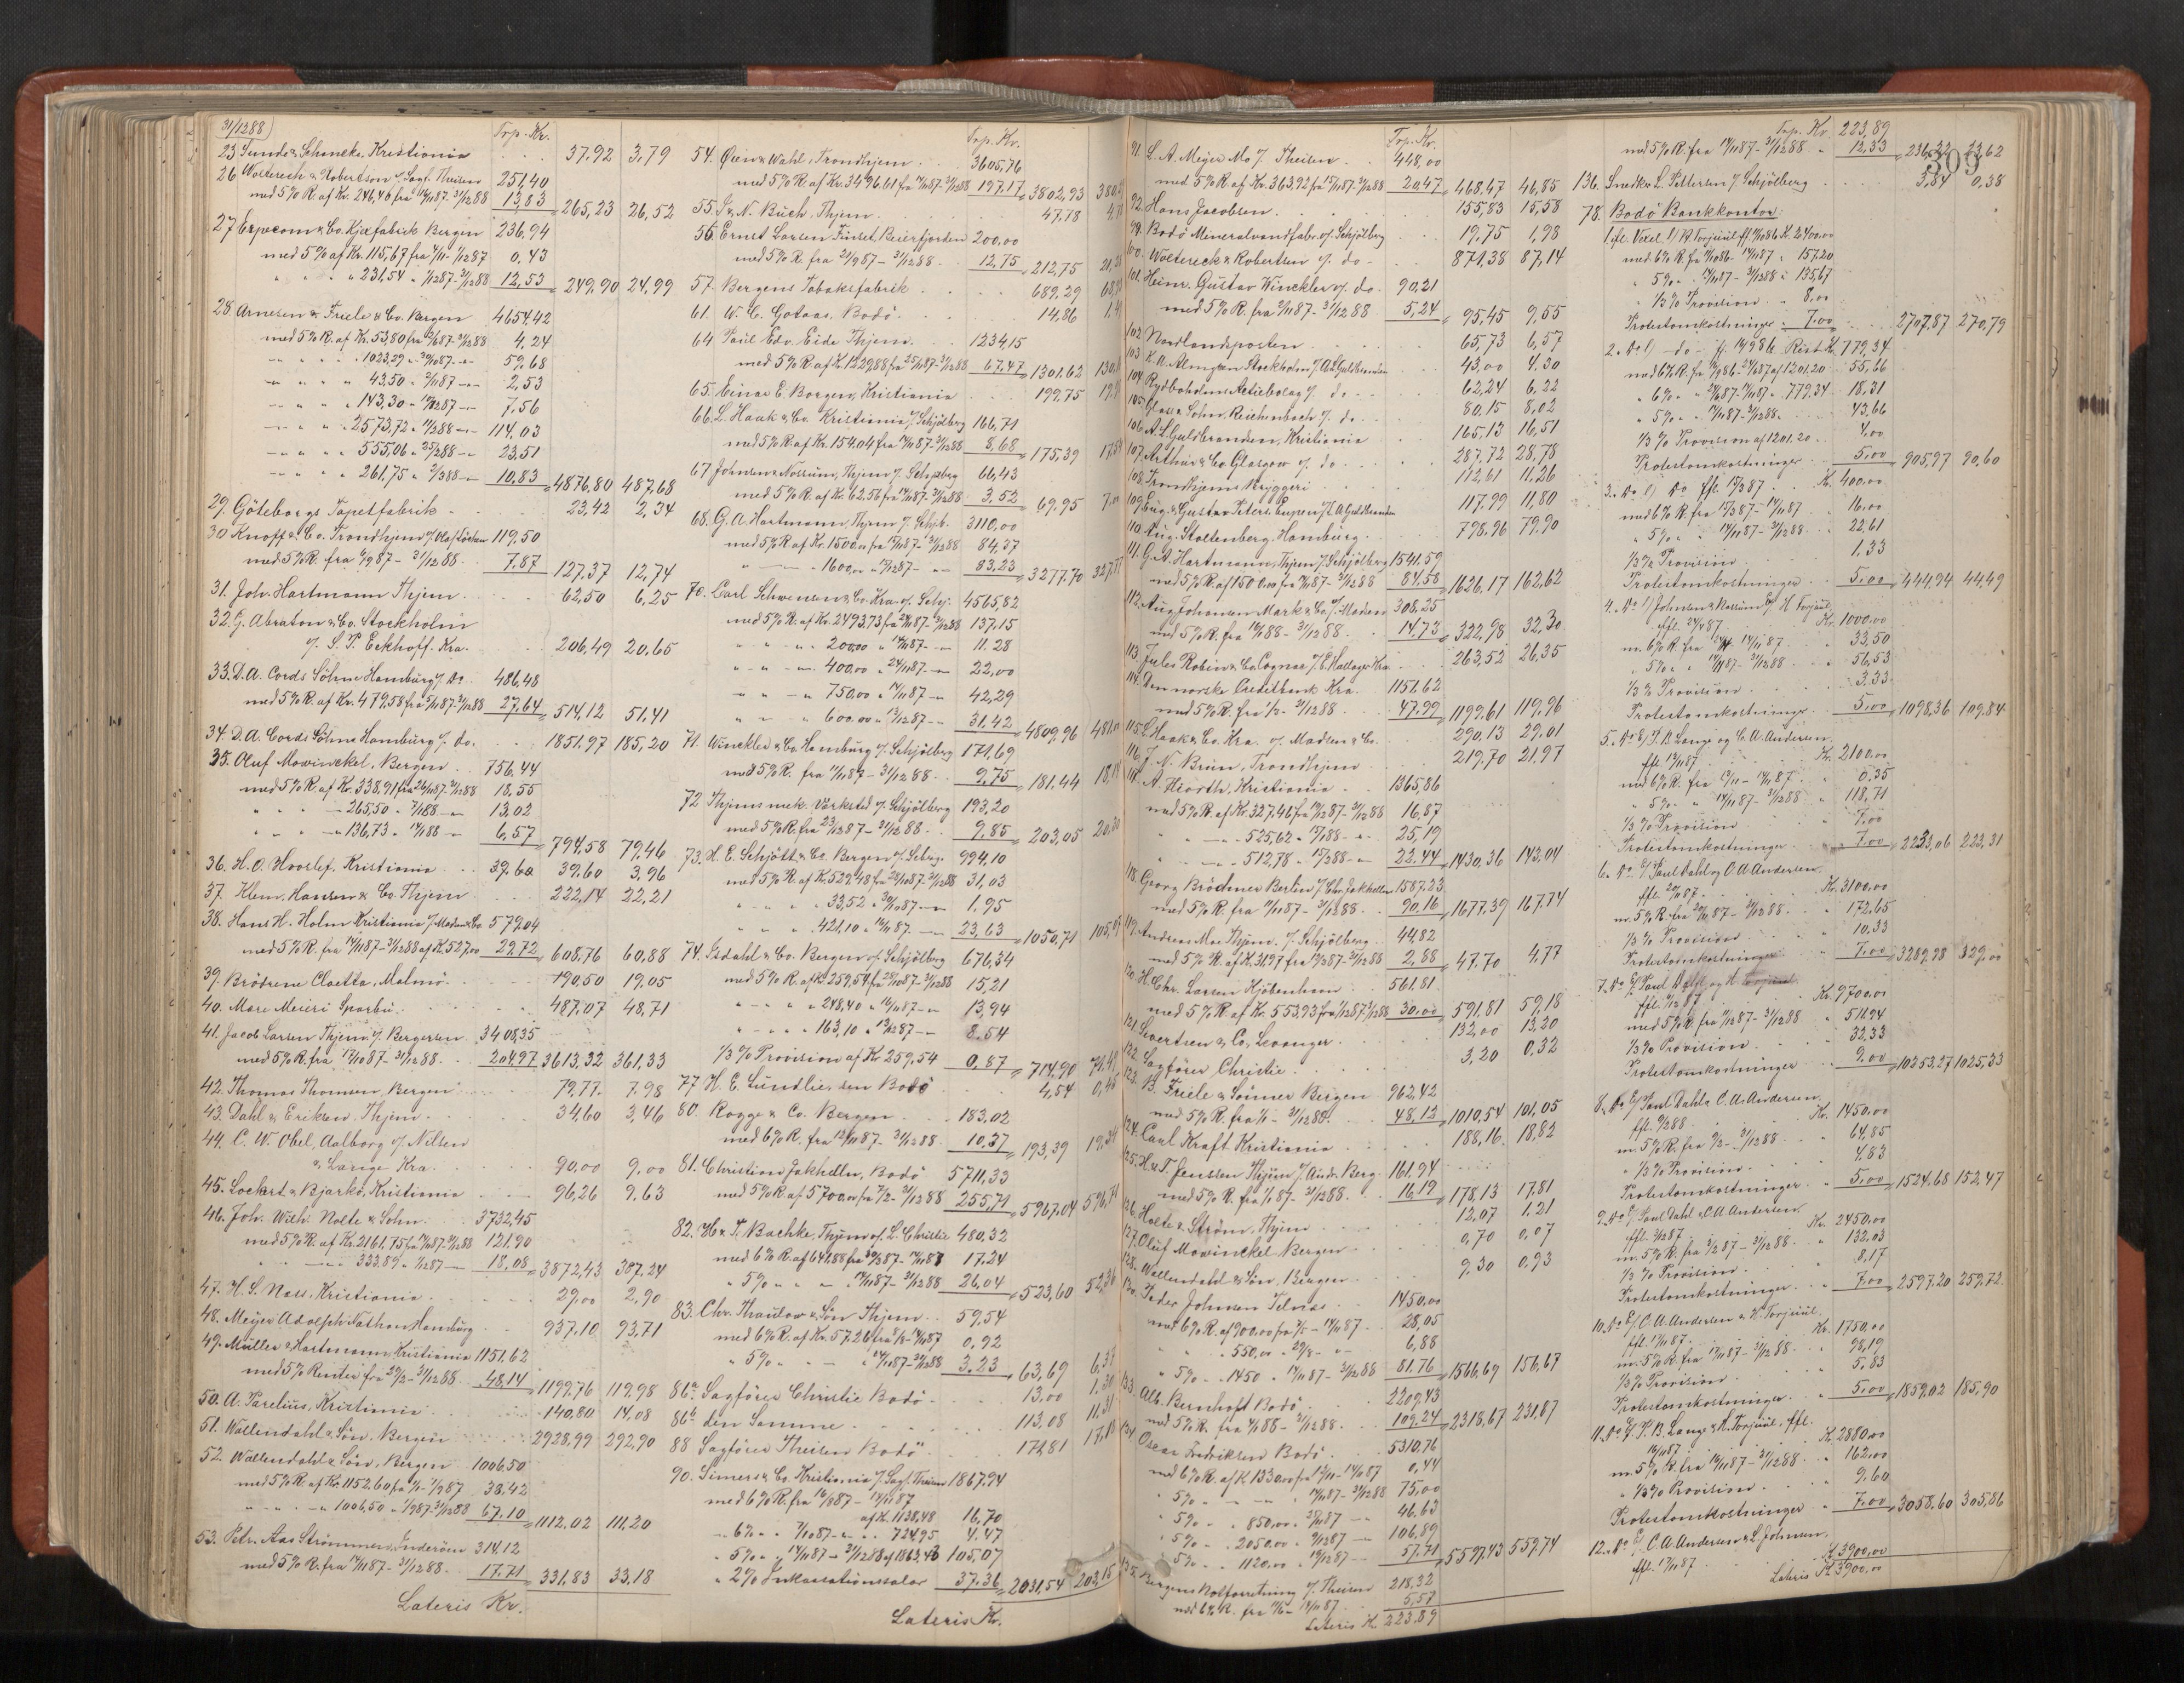 31/1288
Trp. Kr.
23 Tunde & Schancke, Kristiania . . 37,92 3,79
26 Woltereck & Robertson v. Sagf. Theisen 251,40
med 5% R. af Kr. 246,46 fra 14/1187-31/1288 13,83 265,23 26,52
27 & Co. Kjæxfabrik Bergen 236,94
med 5% af Kr. 115,67 fra 0,43
" " " 231,54 " 1/1287-31/1288 12,53 249,90 24,99
28 Arnesen & Friele & Co. Bergen 4654,42
med 5% R. af Kr. 53,80 fra 4,24
" " " 1023,29 " 59,68
" " " 43,50 " 2,53
" " " 143,30 " 7,56
" " " 2573,72 " 114,03
" " " 555,06 " 23,51
" " " 261,75 " 10,83 4876,80 487,68
29. Göteborgs Tapetfabrik 23,42 2,34
30 Knoff & Co. Trondhjem 119,50
med 5% R. fra 87-31/1288 7,87 127,37 12,74
31. Joh. Hartmann Thjem 62,50 6,25
32. G. Abraton & Co. Stockholm
v/ S. P. Eckhoff. Kra. 206,49 20,65
33. D. A. Cords Söhne Hamburg v/ Do 486,48
med 5% R. af Kr. 479,58 fra 27,64 514,12 51,41
34. D. A. Cords Söhne Hamburg v/ do. 1851,97 185,20
35. Oluf Mowinckel, Bergen 756,44
med 5% R. af Kr. 338,91 fra 18,55
" " 265,50 " 13,02
" " 136,73 " 6,57 794,58 79,46
36. H. O. Hooslef, Kristiania 39,60 39,60 3,96
37. Klem, Hansen & Co. Thjem 222,14 22,21
38. Hans H. Holm Kristiania v/ Madsen & Co 579,04
med 5% R. fra 14/1187-31/1288 af K. 527,00 29,72 608,76 60,88
39. Brödrene Cloetta, Malmö 190,50 19,05
40. Mære Meieri Sparbu 487,07 48,71
41. Jacob Larsen Thjem v/ Bergersen 3408,35
med 5% R. fra 17/1087-31/1288 204,97 3613,32 361,33
42. Thomas Thomsen, Bergen 79,77 7,98
43. Dahl & Eriksen, Thjem 34,60 3,46
44. C. W. Obel, Aalborg v/ Nilsen
& Lange Kra. 90,00 9,00
45. Lockert & Bjarkö, Kristiania 96,26 9,63
46. Joh. Wilh. Nolte & Sohn 3732,45
med 5% R. af Kr. 2161,75 fra 121,90
" " 333,89 " 18,08 3872,43 387,24
47. H. S. Nass, Kristiania 29,00 2,90
48. Meyer Adolph Nathan Hamburg 937,10 93,71
49. Müller & Hartmann, Kristiania 1151,62
med 5% Renter fra 29/2-31/1288 48,14 1199,76 119,98
50. A. Parelius, Kristiania 140,80 14,08
51. Wallendahl & Søn, Bergen 2928,99 292,90
52. Wallendahl & Søn, Bergen 1006,50
med 5% R. af Kr. 1152,60 fra 38,42
" " " 1006,50 " 1/987-31/1288 67,10 1112,02 111,20
53. Petr. Aas Strømmen, Inderøen 314,12
med 5% R. fra 14/1187-31/1288 17,71 331,83 33,18
Lateris Kr.
Trp. Kr.
54. Øien & Wahl, Trondhjem 3605,76
med 5% R. af Kr. 3496,61 fra 14/1187-31/1288 197,17 3802,93
55. J. & N. Buch, Thjem 47,78
56. Ernst Larsen Finset, Beierfjorden 200,00
med 5% R. fra 21/987-31/1288 12,75 212,75
57. Bergens Tobaksfabrik 689,29
61. W. C. Gotaas, Bodö 14,86
64. Paul Edv. Eide Thjem 1234,15
med 5% R. af K. 1229,88 fra 67,47 1301,62
65. Einar E. Borgen, Kristiania 199,75
66. L. Haak & Co. Kristiania v/ Schjölberg 166,71
med 5% R. af Kr. 154,04 fra 8,68 175,39
67. Johnsen & Nossum, Thjem v/ Schjølberg 66,43
med 5% R. af Kr. 62,56 fra 14/1187-31/1288 3,52 69,95
68. G. A. Hartmann, Thjem v/ Schjb. 3110,00
med 5% R. af Kr. 1500,00 fra 84,37
" 1600,00 " 83,23 3277,70
70. Carl Schwensen & Co. Kra. v/ Schj. 4565,82
med 5% R. af Kr. 2493,73 fra 137,15
" " " 200,00 " 11,28
" " " 400,00 " 22,00
" " " 750,00 " 42,29
" " " 600,00 " 31,42 4809,96
71. Winckler & Co. Hamburg v/ Schjölberg 171,69
med 5% R. fra 14/1187-31/1288 9,75 181,44
72. Thjems mek. Værksted v/ Schjölberg 193,20
med 5% R. fra 23/1287-31/1288 9,85 203,05
73. H. E. Schjött & Co. Bergen v/ Schjb. 994,10
med 5% R. af Kr. 529,48 fra 31,03
" " " 33,52 " 1,95
" " " 421,10 " 23,63 1050,71
74. Isdahl & Co. Bergen v/ Schjölberg 676,34
med 5% R. af K. 259,54 fra 15,21
" " " 248,40 " 13,94
" " " 163,10 " 8,54
1/3% Provision af Kr. 259,54 0,87 714,90
77. H. E. Lundlie, sen Bodö 4,54
80. Rogge & Co. Bergen 183,02
med 6% R. fra 87-31/1288 10,37 193,39
81. Christian Jakhelln, Bodö 5711,33
med 5% R. af 5700,00 fra 7/2-31/1288 255,71 5967,04
82. H. & T. Bachke, Thjem v/ L. Christie 480,32
med 6% R. af 641,88 fra 17,24
" 5% " 14/1187-31/1288 26,04 523,60
83. Chr. Thaulow & Søn Thjem 59,54
med 6% R. af Kr. 57,26 fra 0,92
" 5% " 14/1187-31/1288 3,23 63,69
86a. Sagfører Christie Bodö 13,00
86b. den Samme 113,08
88. Sagfører Theisen Bodö 171,81
90. Simers & Co. Kristiania v/ Sagf. Theisen 1867,94
med 6% R. fra 87-14/1187
af K. 1138,48 16,70
" 6% " 724,95 4,47
" 5% " 14/1187-31/1288 af 1863,43 105,07
" 2% Inkassationssalær 37,36 2031,54
Lateris Kr.
Trp. Kr.
91. L. A. Meyer Mo v/ Theisen 448,00
med 5% R. af Kr. 363,92 fra 20,47 468,47 46,85
92. Hans Jacobsen 155,83 15,58
94. Bodö Mineralvandfabr. v/ Schjölberg 19,75 1,98
100. Woltereck & Robertsen v/ do 871,38 87,14
101. Heinr. Gustav Winckler v/ do. 90,21
med 5% R. fra 87-31/1288 5,24 95,45 9,55
102. Nordlandsposten 65,73 6,57
103. K. A. Almgren Stockholm v/ A. L. Guldbrandsen 43,00 4,30
104. Rydboholms Actiebolag v/ do 62,24 6,22
105. Glass & Sohn, Reichenbach v/ do 80,15 8,02
106. A. L. Guldbrandsen, Kristiania 165,13 16,51
107. Arthur & Co. Glasgow v/ do 287,72 28,78
108. Trondhjems Bryggeri 112,61 11,26
109. Eug. & Gustav Peters Eupen v/ A. Guldbrandsen 117,99 11,80
110. Aug. Stoltenberg, Hamburg 798,96 79,90
111. G. A. Hartmann, Thjem v/ Schjölberg 1541,59
med 5% R. af 1500,00 fra 84,58 1626,17 162,62
112. Aug. Johansen Mark & Co. v/ Madsen 308,25
med 5% R. fra 88-31/1288 14,73 322,98 32,30
113. Jules Robin & Co. Cognac v/ E. Hallager Kra. 263,52 26,35
114. Den norske Creditbank Kra. 1151,62
med 5% R. fra 1/2-31/1288 47,99 1199,61 119,96
115. L. Haak & Co. Kra. v/ Madsen & Co. 290,13 29,01
116. J. N. Brun, Trondhjem 219,70 21,97
117. A. Hiorth, Kristiania 1365,86
med 5% R. af Kr. 327,46 fra 16,87
" 525,62 " 25,19
" 512,78 " 22,44 1430,36 143,04
118. Georg Brödmer Berlin v/ Chr. Jakhelln 1587,23
med 5% R. fra 87-31/1288 90,16 1677,39 167,74
119. Andreas Moe Thjem. v/ Schjölberg 44,82
med 5% R. af K. 31,97 fra 2,88 47,70 4,77
120. H. Chr. Larsen Kjöbenhavn 561,81
med 5% R. af Kr. 553,93 fra 30,00 591,81 59,18
121. Sivertsen & Co. Levanger 132,00 13,20
122. Sagfører Christie 3,20 0,32
123. B. Friele & Sønner Bergen 962,42
med 5% R. fra 1/1-31/1288 48,12 1010,54 101,05
124. Carl Kraft Kristiania 188,16 18,82
125. H. & F. Jenssen Thjem v/ And. Berg 161,94
med 5% R. fra 87-31/1288 16,19 178,13 17,81
126. Holte & Strøm, Thjem 12,07 1,21
127. Oluf Mowinckel Bergen 0,70 0,07
128. Wallendahl & Søn, Bergen 9,30 0,93
130. Peder Johnsen Telnæs 1450,00
med 6% R. af 900,00 fra 28,05
" 550,00 " 6,88
" 5% " 1450 " 14/1187-31/1288 81,76 1566,69 156,67
133. Alb. Bernhoft Bodö 2209,43
med 5% R. fra 88-31/1288 109,24 2318,67 231,87
134. Oscar Fredriksen Bodö 5310,76
med 6% R. af K. 1330,00 fra 0,44
" 5% " 14/1187-31/1288 75,00
" 5% " 850,00 " 46,63
" 5% " 2050,00 " 106,89
" 5% " 1120,00 " 57,71 5597,43 559,74
135. Bergens Kolforretning v/ Theisen 218,32
med 6% R. fra 5,57
Lateris Kr. 223,89
309
Trp. Kr. 223,89
med 5% R. fra 14/1187-31/1288 12,33 236,22 23,62
136. Snedker L. Pettersen v/ Schjölberg 3,84 0,38
78. Bodö Bankkontor:
1. ffl. Vexel 2400,00
med 6% R. fra 157,20
" 5% " 14/1187-31/1288 " 135,67
" 1/3% Provision " 8,00
Protestomkostninger 7,00 2707,87 270,79
2. Do - do - Rest K. 779,34
med 6% R. fra af 1201,20 55,66
" 6% " 779,34 18,31
" 5% " 14/1187-31/1288 43,66
1/3% Provision af 1201,20 4,00
Protestomkostninger 5,00 905,97 90,60
3. Do Do ffl. Kr. 400,00
med 6% R. fra 16,00
" 5% " 14/1187-31/1288 22,61
1/3% Provision 1,33
Protestomkostninger 5,00 444,94 44,49
4. Do Johnsen & Nossum v/ H. Torjuul
ffl. Kr. 1000,00
m. 6% R. fra 33,50
" 5% " 14/1187-31/1288 " 56,53
1/3% Provision 3,33
Protestomkostninger 5,00 1098,36 109,84
5. Do P. B. Lange og C. A. Andersen
ffl. Kr. 2100,00
med 6% R. fra 0,35
" 5% " 14/1187-31/1288 118,71
1/3% Provision 7,00
Protestomkostninger 7,00 2233,06 223,31
6. Do Paul Dahl og C. A. Andersen
ffl. Kr. 3100,00
m. 5% R. fra 87-31/1288 172,65
1/3% Provision 10,33
Protestomkostninger 7,00 3289,98 329,00
7. Do Paul Dahl og H. Torjuul
ffl. Kr. 9700,00
med 5% R. fra 87-31/1288 511,94
1/3% Provision 32,33
Protestomkostninger 9,00 10253,27 1025,33
8. Do Paul Dahl & C. A. Andersen
ffl. Kr. 1450,00
m. 5% R. fra 9/2-31/1288 64,85
" 1/3% Provision 4,83
Protestomkostninger 5,00 1524,68 152,47
9. Do Paul Dahl & C. A. Andersen
ffl. Kr. 2450,00
m. 5% R. fra 87-31/1288 132,03
1/3% Provision 8,17
Protestomkostninger 7,00 2597,20 259,72
10. Do C. A. Andersen & H. Torjuul
ffl. Kr. 1750,00
m. 5% R. fra 87-31/1288 98,19
1/3% Provision 5,83
Protestomkostninger 5,00 1859,02 185,90
11. Do P. B. Lange & H. Torjuul, ffl.
K. 2880,00
m. 5% R. fra 87-31/1288 162,00
" 1/3% Provision 9,60
Protestomkostninger 7,00 3058,60 305,86
12. Do C. A. Andersen & L. Johnsen,
ffl. K. 3900,00
Lateris K. 3900,00